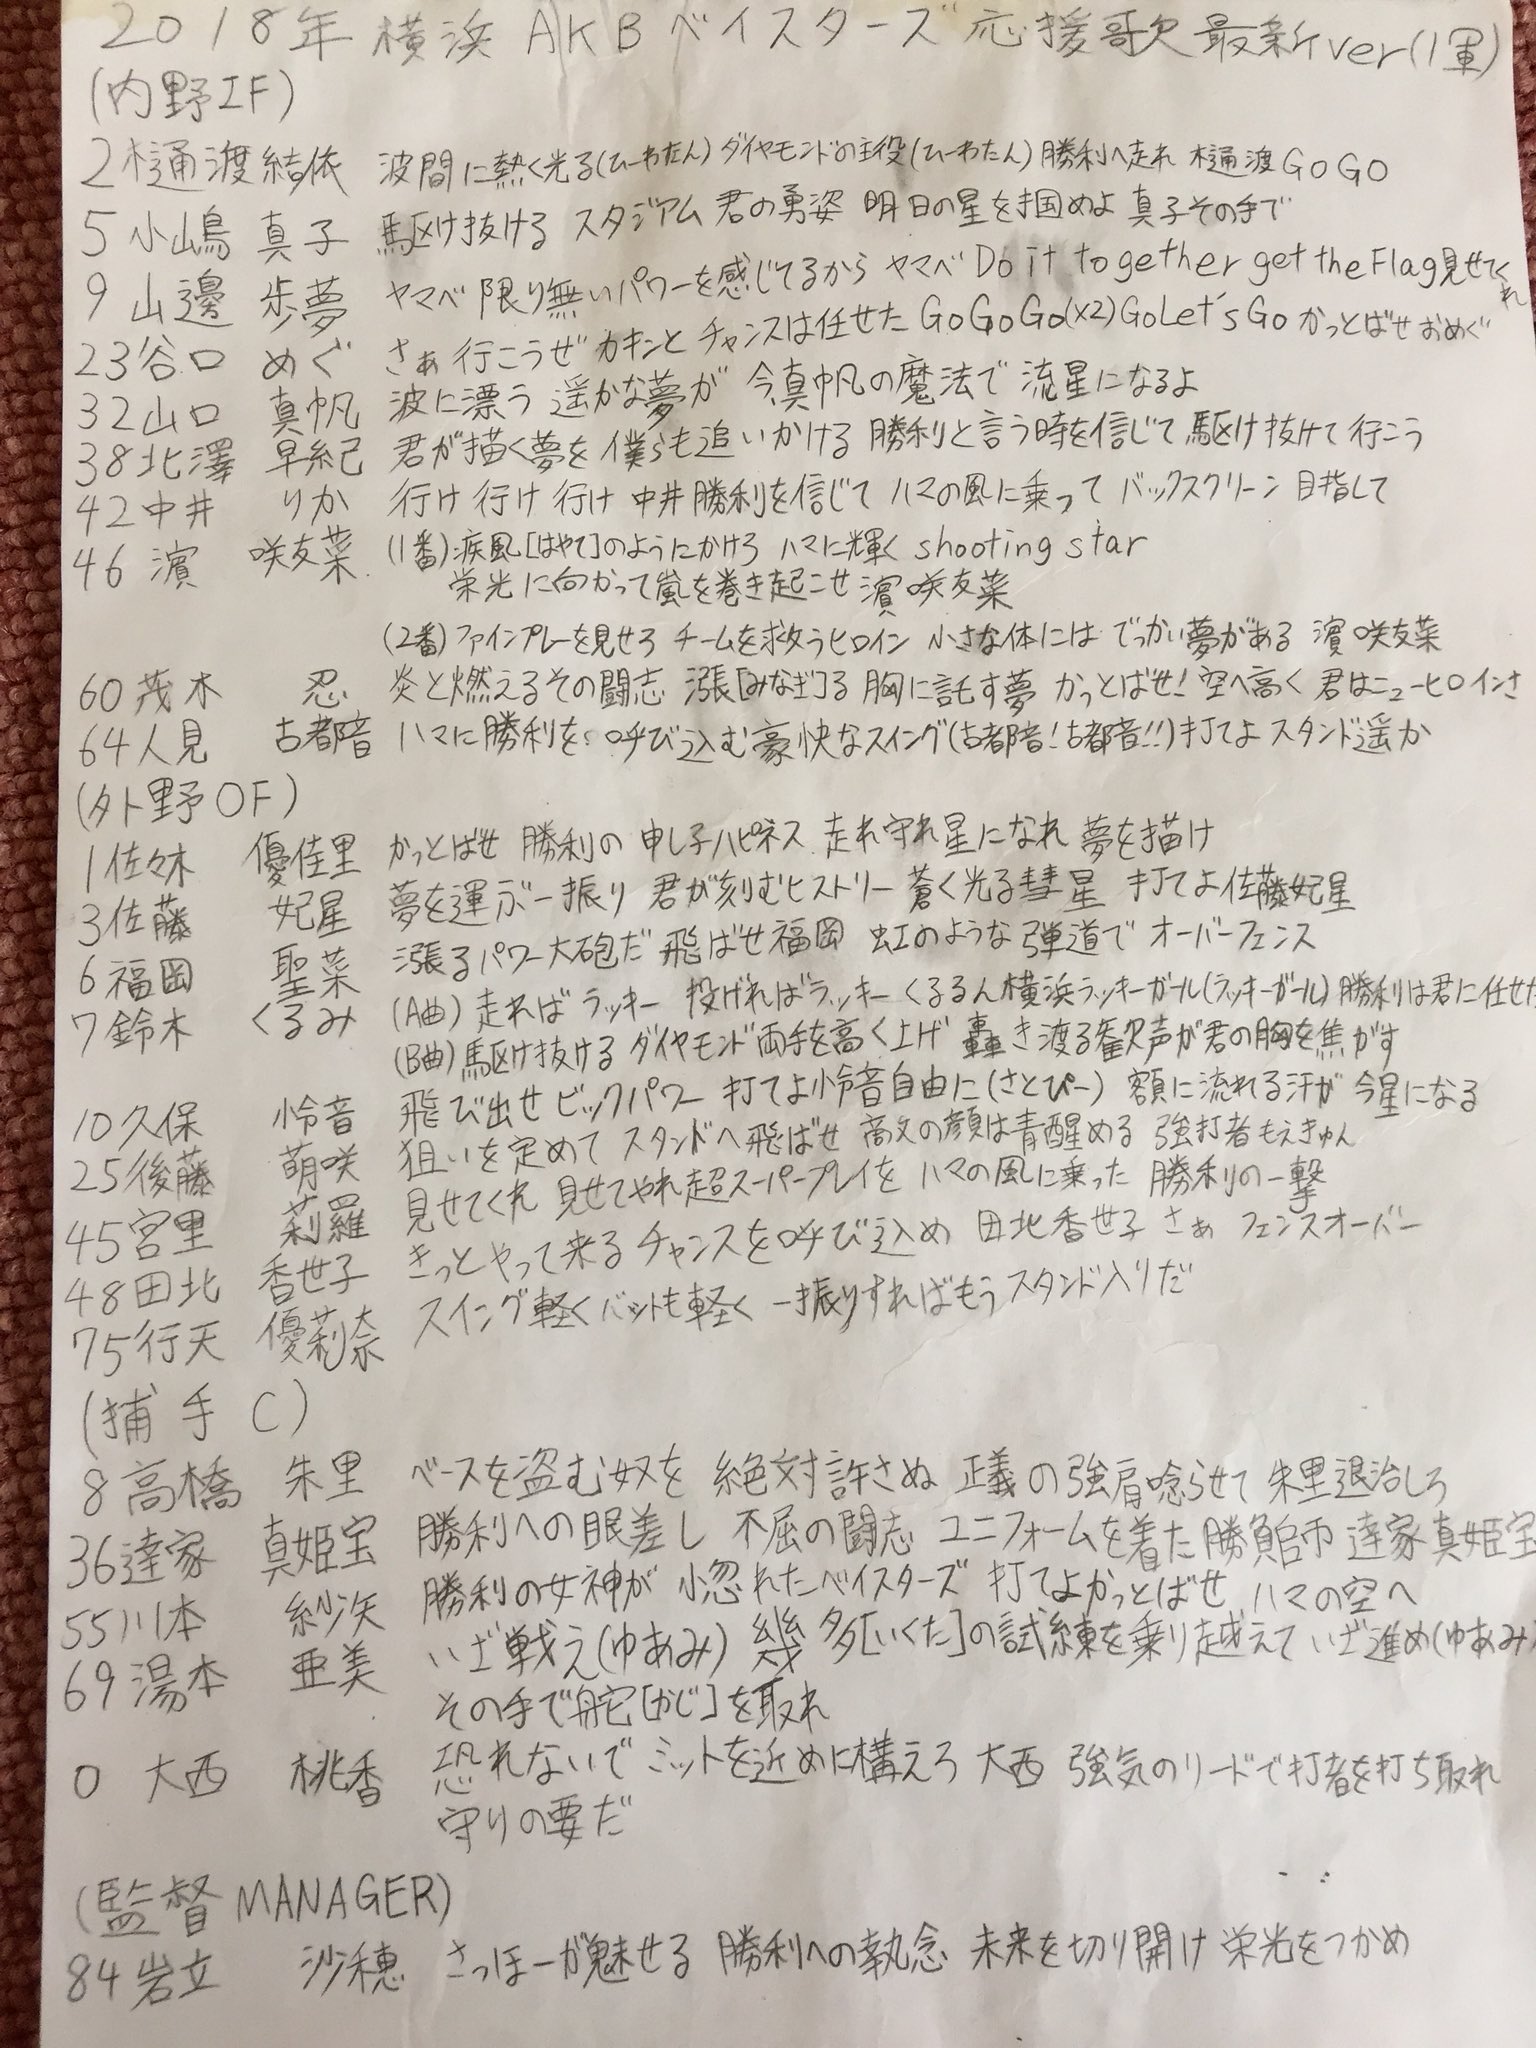 2018年 横浜 AKBベイスターズ 応援歌最新ver(1軍)
(内野IF)
2 樋渡結依 波間に熱く光る(ひーわたん) ダイヤモンドの主役(ひーわたん) 勝利へ走れ 樋渡GOGO
5 小嶋 真子 駆け抜ける スタジアム 君の勇姿 明日の星を掴めよ 真子その手で
9 山邊 歩夢 ヤマベ 限り無いパワーを感じてるから ヤマベ Do it together get the Flag見せてくれ
23 谷口 めぐ さぁ 行こうぜ カキンと チャンスは任せた GoGoGo(x2)GoLet's Go かっとばせ おめぐ
32 山口 真帆 波に漂う 遥かな夢が 今真帆の魔法で 流星になるよ
38 北澤 早紀 君が描く夢を 僕らも追いかける 勝利と言う時を信じて 駆け抜けて行こう
42 中井 りか 行け 行け 行け 中井 勝利を信じて ハマの風に乗って バックスクリーン 目指して
46 濵 咲友菜 (1番)疾風[はやて]のようにかけろ ハマに輝く shooting star
栄光に向かって嵐を巻き起こせ 濵 咲友菜
(2番)ファインプレーを見せろ チームを救うヒロイン 小さな体には でっかい夢がある 濵 咲友菜
60 茂木 忍 炎と燃えるその闘志 漲[みなぎ]る 胸に託す夢 かっとばせ! 空へ高く 君はニューヒロインさ
64 人見 古都音 ハマに勝利を 呼び込む豪快なスイング(古都音!古都音!!)打てよ スタンド遥か
(外野OF)
1 佐々木 優佳里 かっとばせ 勝利の 申し子ハピネス 走れ守れ星になれ 夢を描け
3 佐藤 妃星 夢を運ぶ一振り 君が刻むヒストリー 蒼く光る彗星 打てよ佐藤妃星
6 福岡 聖菜 漲るパワー大砲だ 飛ばせ福岡 虹のような弾道で オーバーフェンス
7 鈴木 くるみ (A曲) 走ればラッキー 投げればラッキー くるるん横浜ラッキーガール(ラッキーガール) 勝利は君に任せた
(B曲) 駆け抜ける ダイヤモンド両手を高く上げ 轟き渡る歓声が君の胸を焦がす
10 久保 怜音 飛び出せ ビックパワー 打てよ怜音自由に(さとぴー) 額に流れる汗が 今星になる
25 後藤 萌咲 狙いを定めて スタンドへ飛ばせ 高文の顔は青醒める 強打者もえきゅん
45 宮里 莉羅 見せてくれ 見せてやれ超スーパープレイを ハマの風に乗った 勝利の一撃
48 田北 香世子 きっとやって来る チャンスを呼び込め 田北香世子 さぁ フェンスオーバー
75 行天 優莉奈 スイング軽くバットも軽く 一振りすればもうスタンド入りだ
(捕手 C)
8 高橋 朱里 ベースを盗む奴を 絶対許さぬ 正義の強肩唸らせて 朱里退治しろ
36 達家 真姫宝 勝利への眼差し 不屈の闘志 ユニフォームを着た勝負師 達家真姫宝
55 川本 紗矢 勝利の女神が 小惚れたベイスターズ 打てよかっとばせ ハマの空へ
69 湯本 亜美 いざ戦え(ゆあみ) 幾多[いくた]の試練を乗り越えて いざ進め(ゆあみ)
その手で舵[かじ]を取れ
0 大西 桃香 恐れないで ミットを近めに構えろ 大西 強気のリードで打者を打ち取れ
守りの要だ
(監督MANAGER)
84 岩立 沙穂 さっほーが魅せる 勝利への執念 未来を切り開け 栄光をつかめ